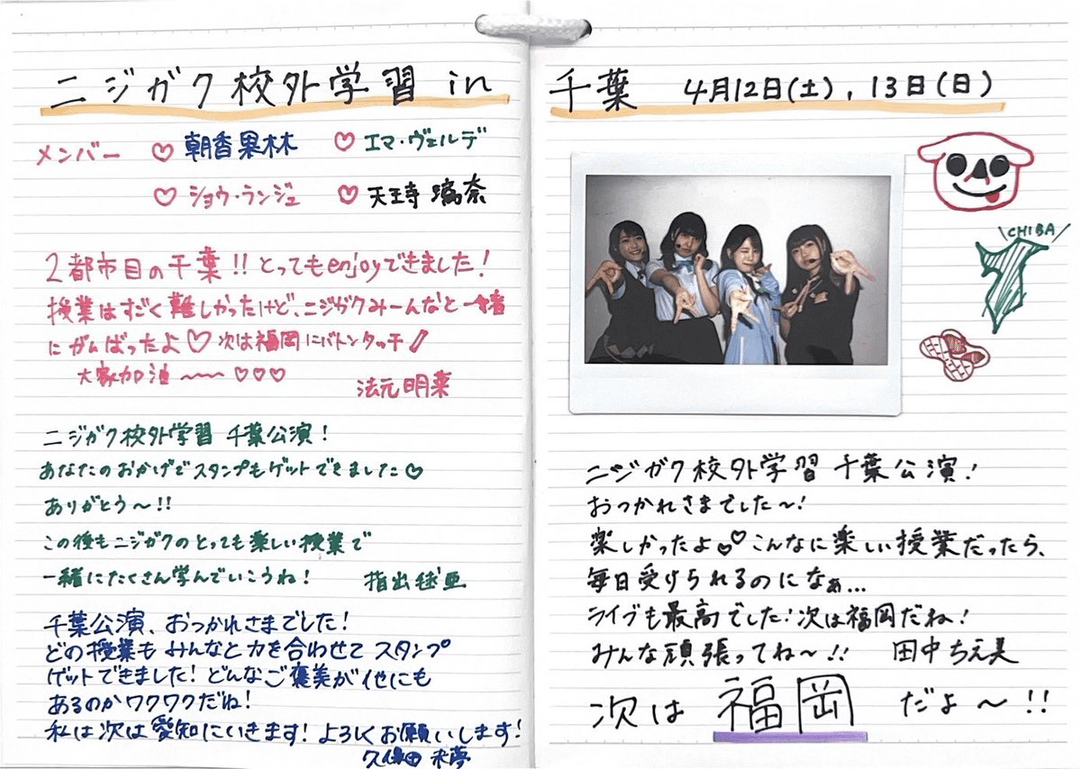 ニジガク校外学習 in 千葉 4月12日(土), 13日(日)
メンバー ♡朝香果林 ♡エマ・ヴェルデ
♡ショウ・ランジュ ♡天王寺璃奈
2都市目の千葉!! とってもenjoyできました!
授業はすごく難しかったけど、ニジガクみーんなと一緒
にがんばったよ♡ 次は福岡にバトンタッチ!
大家加油〜〜〜♡♡♡
法元明菜
ニジガク校外学習 千葉公演!
あなたのおかげでスタンプもゲットできました♡
ありがとう〜!!
この後もニジガクのとっても楽しい授業で
一緒にたくさん学んでいこうね! 指出毬亜
千葉公演、おつかれさまでした!
どの授業もみんなと力を合わせてスタンプ
ゲットできました! どんなご褒美が他にも
あるのかワクワクだね!
私は次は愛知にいきます! よろしくお願いします!
久保田未夢
\CHIBA/
ニジガク校外学習 千葉公演!
おつかれさまでした〜!
楽しかったよ♡♡こんなに楽しい授業だったら、
毎日受けられるのになぁ...
ライブも最高でした!次は福岡だね!
みんな頑張ってね〜!! 田中ちえ美
次は 福岡 だよ〜!!